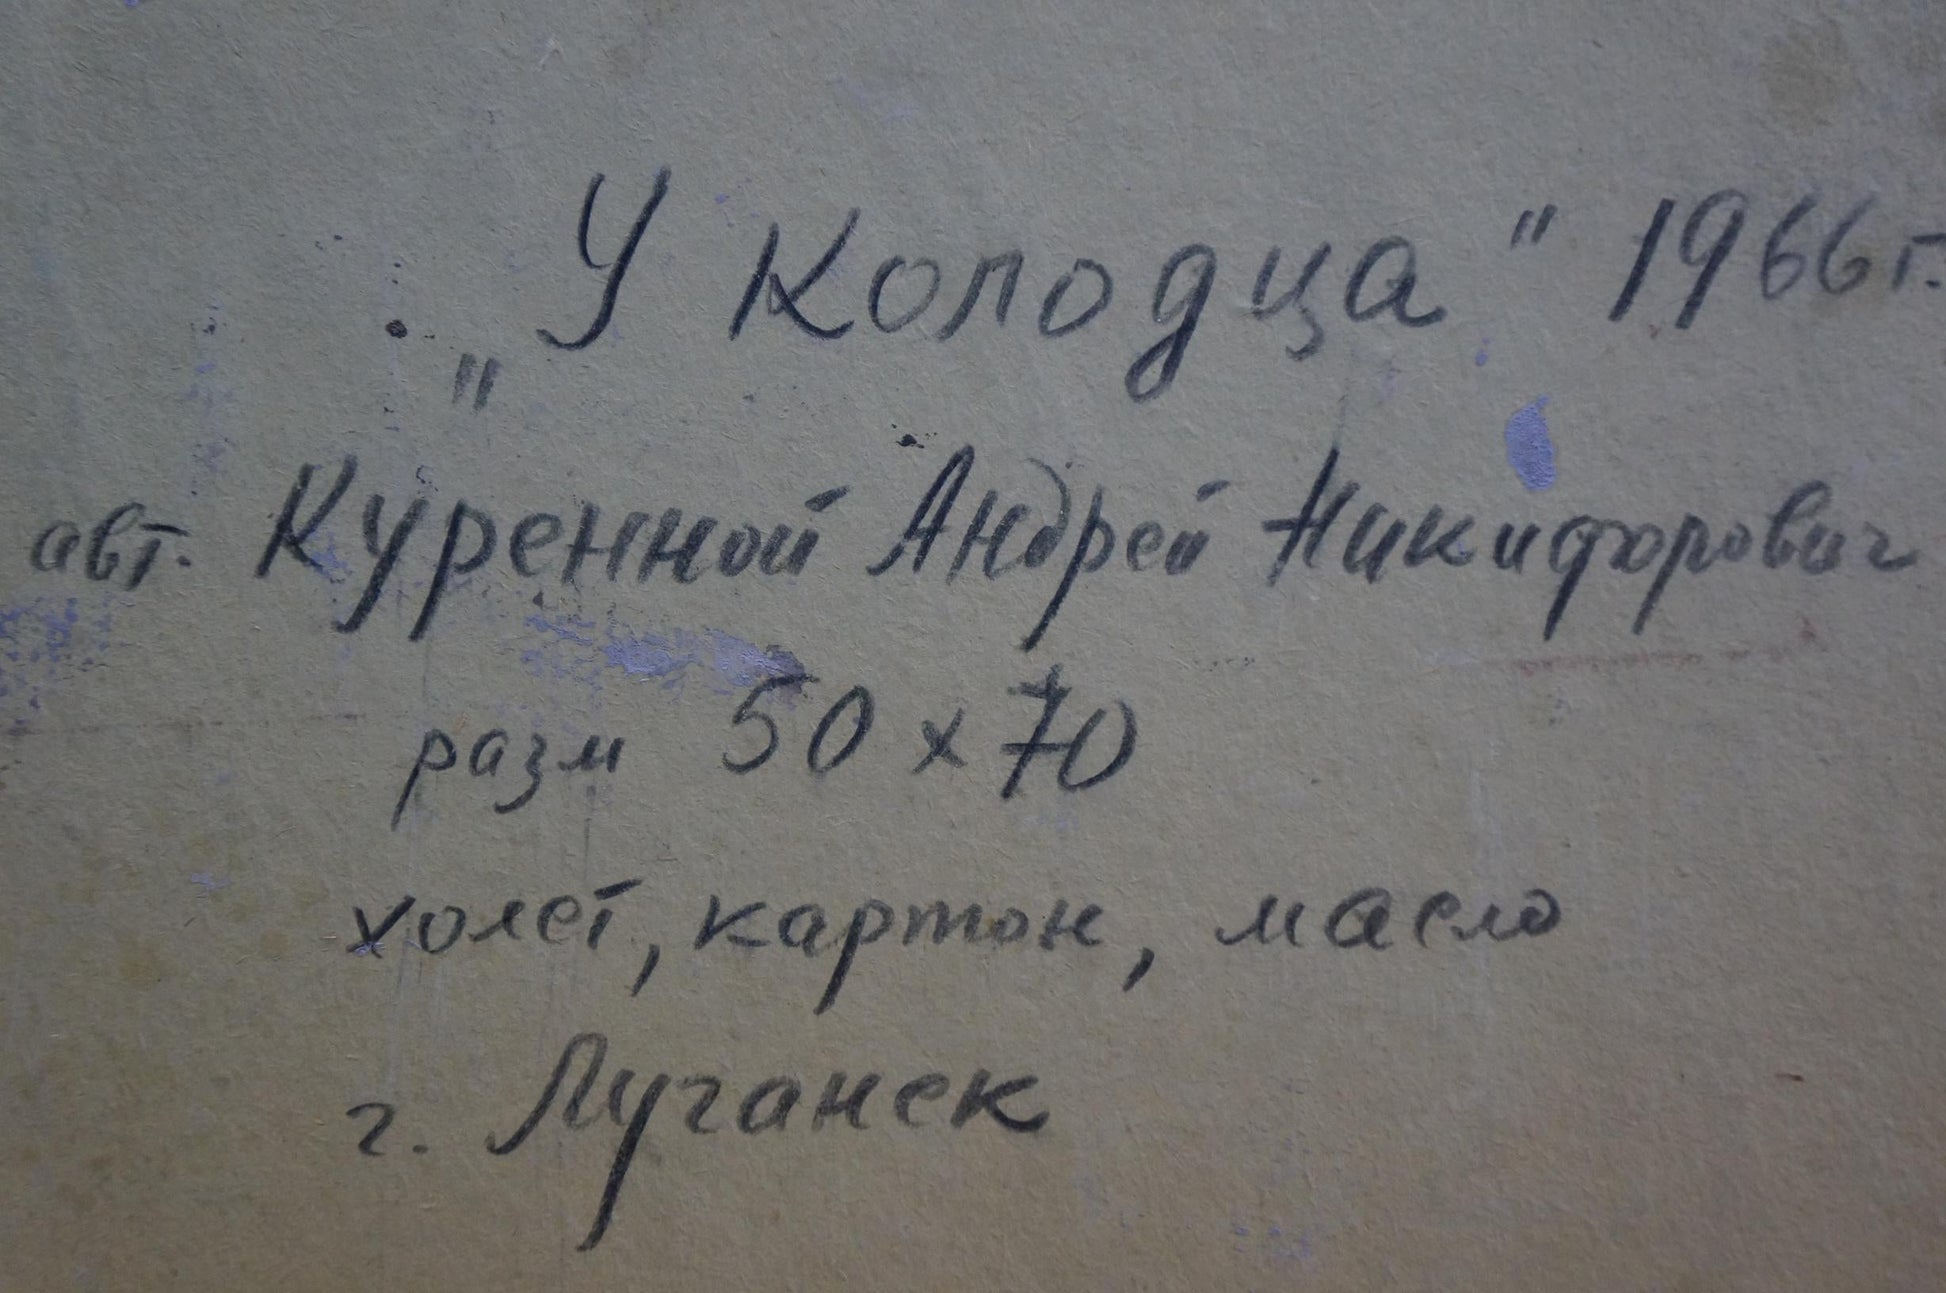 „У Колодца" 1966г.
авт. Куренной Андрей Никифорович
разм 50 x 70
холст, картон, масло
г. Луганск